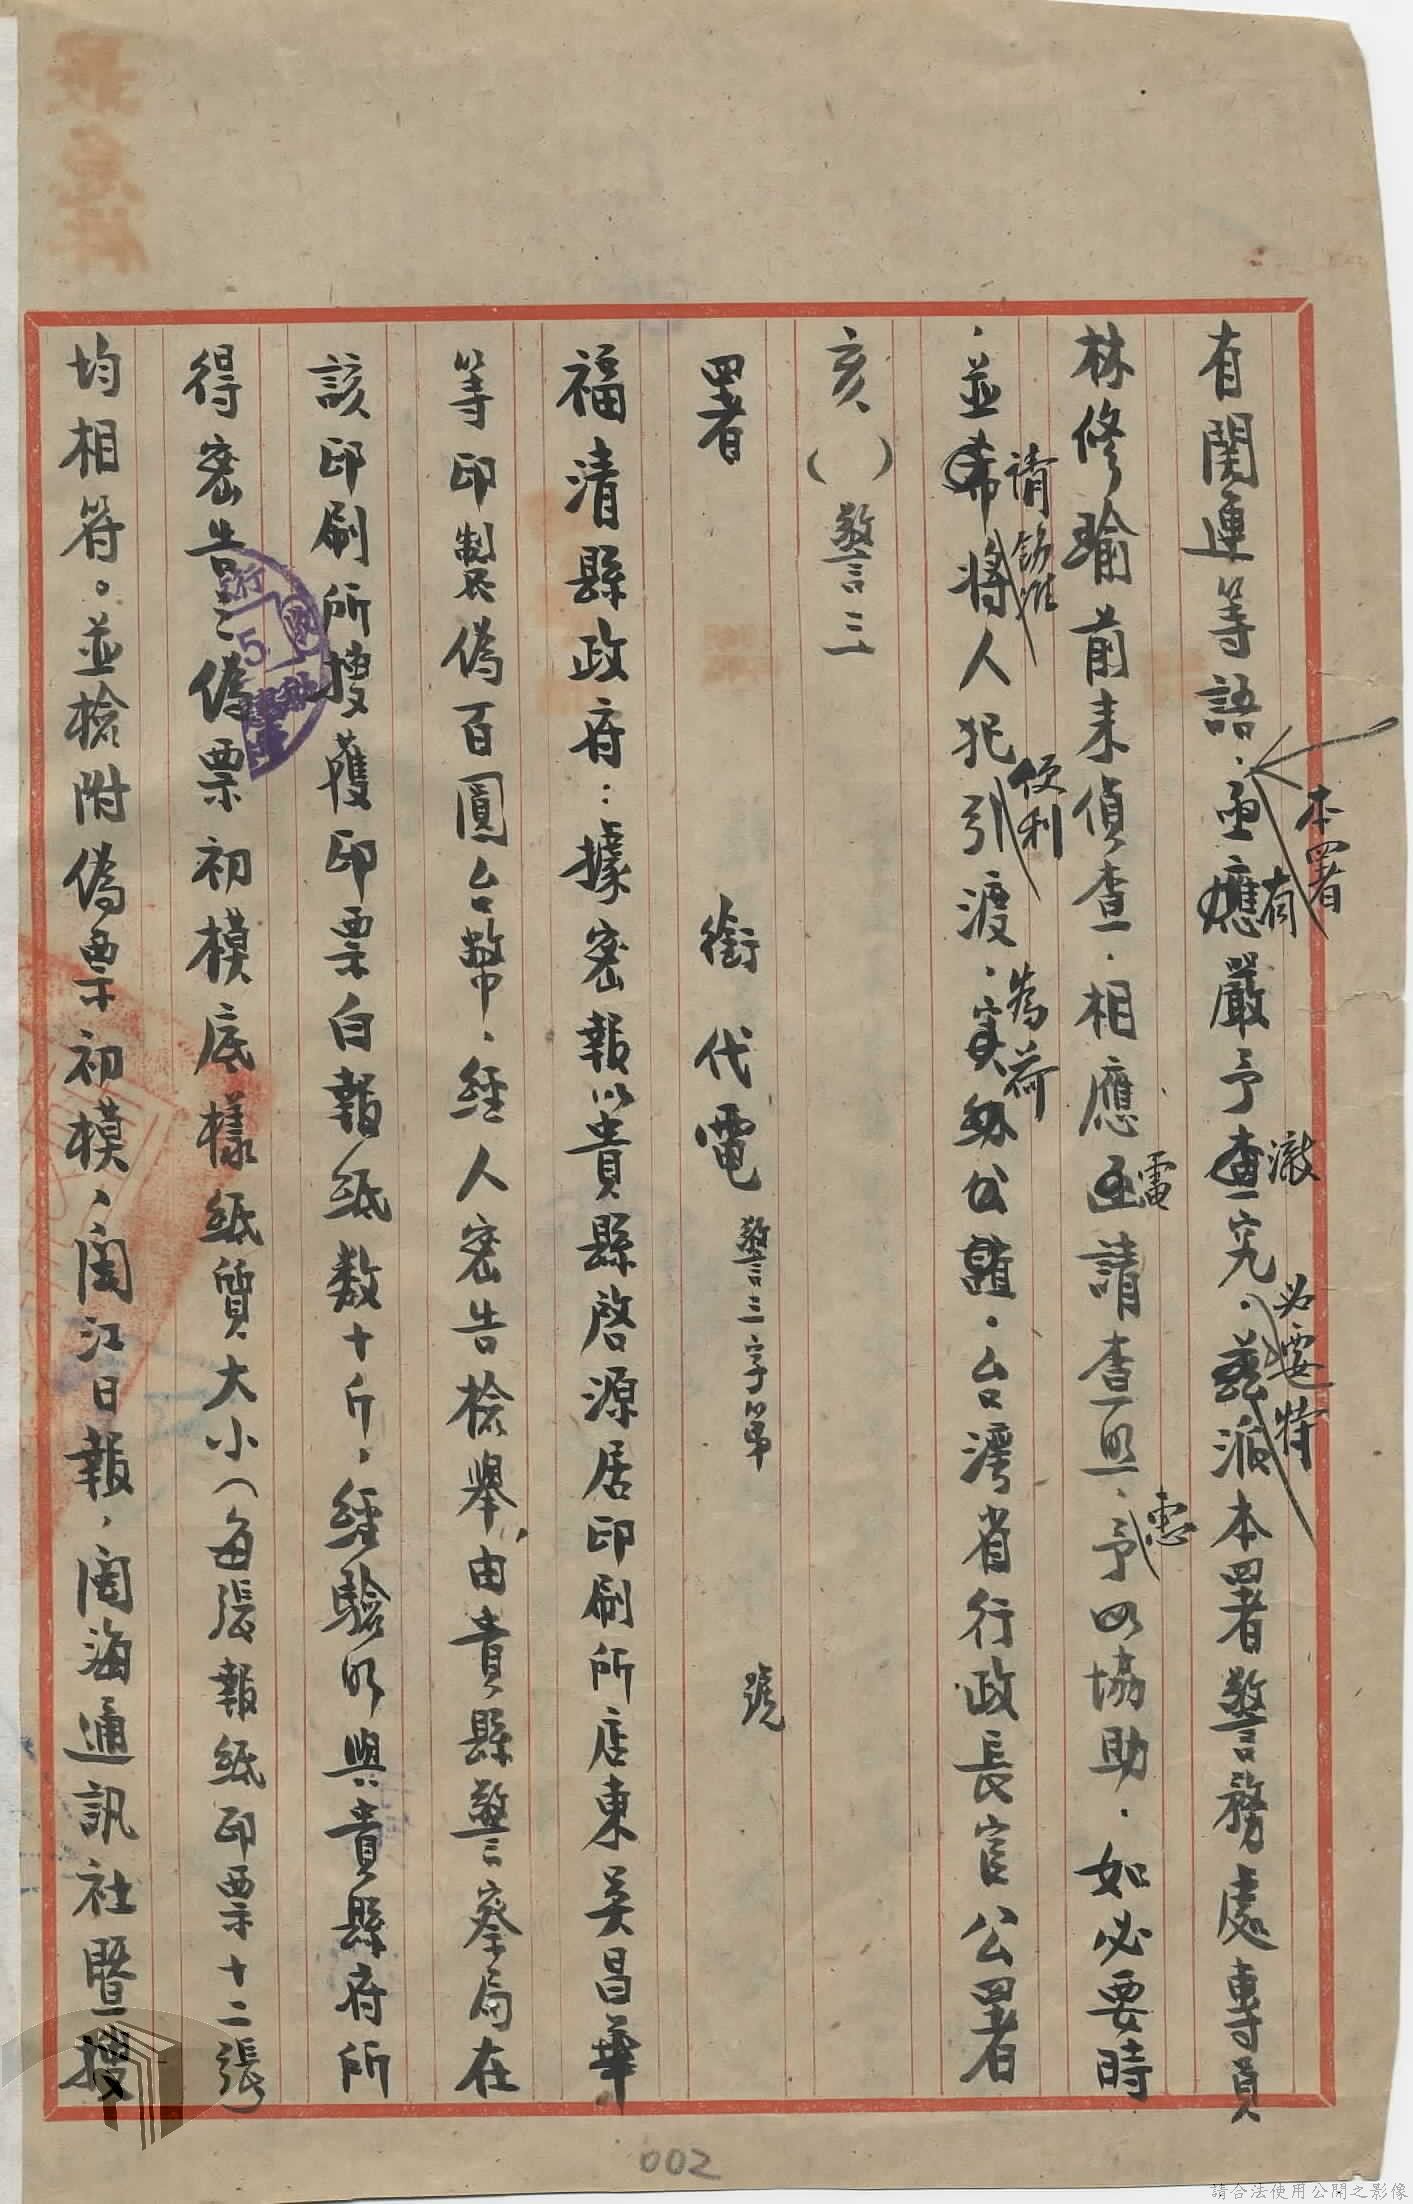 有関連等語．亟應嚴予查究．茲派本署警務處專員
本署
有
澈
必要
特
林修瑜前来偵查．相應函請查照．予以協助．如必要時
電
惠
．並希將人犯引渡．實為公誼．台灣省行政長官公署
請飭准
便利
為荷
亥（　）警三
署　銜代電　警三字第　號
福清縣政府：據密報以貴縣啓源居印刷所店東吴昌華
等印製偽百圓台幣．経人密告檢舉，由貴縣警察局在
該印刷所搜獲印票白報紙数十斤，経驗明與貴縣府所
得密告之偽票初模底樣紙質大小（每張報紙印票十二張）
均相符。並檢附偽票初模、閩江日報．閩海通訊社暨搜
002
請合法使用公開之影像